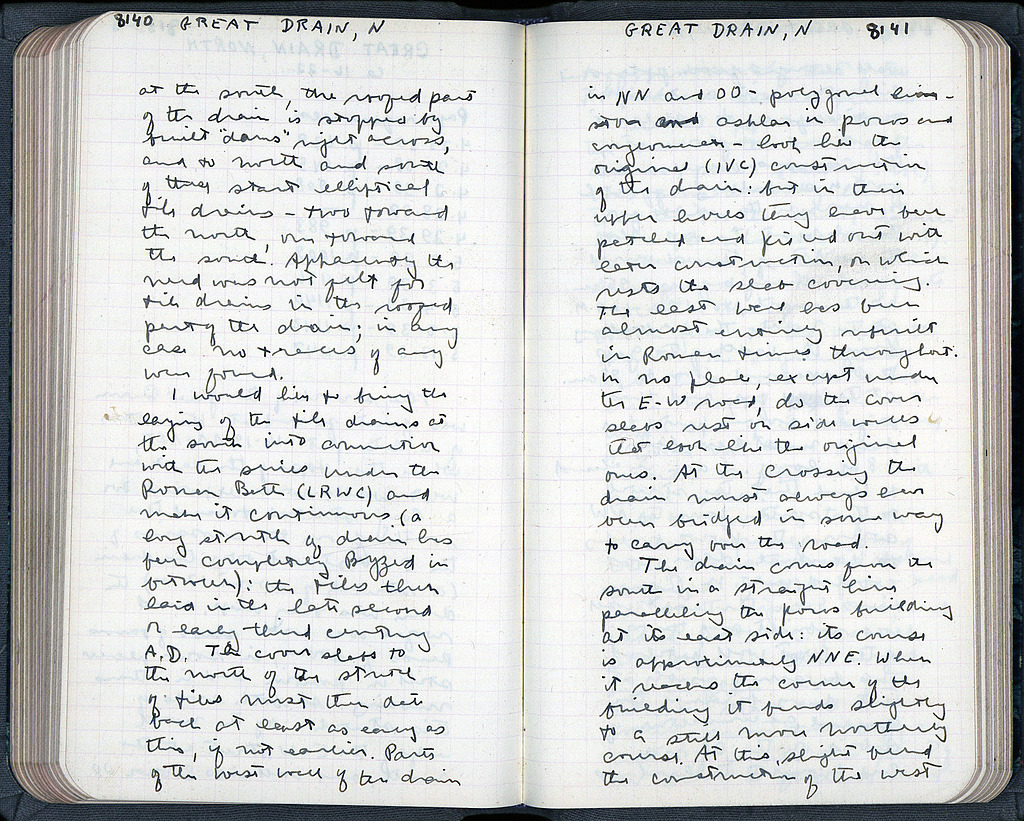 8140 GREAT DRAIN, N
at the south, the roofed part
of the drain is stopped by
built "dams" right across,
and to north and south
of these start elliptical
tile drains – two toward
the north, one toward
the south. Apparently the
need was not felt for
tile drains in the roofed
part of the drain; in any
case no traces of any
were found.
I would like to bring the
laying of the tile drains at
the south into connection
with the series under the
Roman Bath (LRWC) and
make it continuous (a
long stretch of drain has
been completely Byzzed in
between): the tiles then
laid in the late second
or early third century
A.D. The cover slabs to
the north of the stretch
of tiles must then date
back at least as early as
this, if not earlier. Parts
of the west wall of the drain
GREAT DRAIN, N 8141
in NN and OO – polygonal lime-
stone and ashlar in poros and
conglomerate – look like the
original (IVC) construction
of the drain: but in their
upper courses they have been
patched and pieced out with
later construction, on which
rests the slab covering.
The east wall has been
almost entirely rebuilt
in Roman times throughout.
In no place, except under
the E-W road, do the cover
slabs rest on side walls
that look like the original
ones. At the crossing the
drain must always have
been bridged in some way
to carry over the road.
The drain comes from the
south in a straight line
paralleling the poros building
at its east side: its course
is approximately NNE. When
it nears the corner of the
building it bends slightly
to a still more northerly
course. At this slight bend
the construction of the west